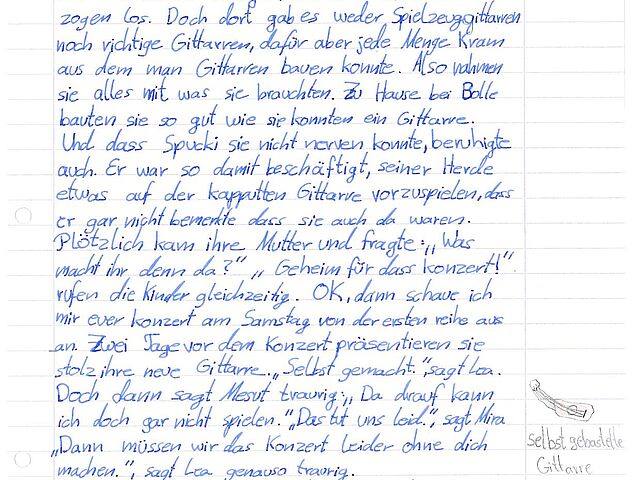 zogen los. Doch dort gab es weder Spielzeuggittarren
noch richtige Gittarren, dafür aber jede Menge Kram
aus dem man Gittarren bauen konnte. Also nahmen
sie alles mit was sie brauchten. Zu Hause bei Bolle
bauten sie so gut wie sie konnten ein Gittarre.
Und dass Spucki sie nicht nerven konnte, beruhigte
auch. Er war so damit beschäftigt, seiner Herde
etwas auf der kapputten Gittarre vorzuspielen, dass
er gar nicht bemerkte dass sie auch da waren.
Plötzlich kam ihre Mutter und fragte: „Was
macht ihr denn da?" „Geheim für dass konzert!"
rufen die Kinder gleichzeitig. OK, dann schaue ich
mir euer konzert am Samstag von der ersten reihe aus
an. Zwei Tage vor dem Konzert präsentieren sie
stolz ihre neue Gittarre. „Selbst gemacht." sagt Lea.
Doch dann sagt Mesut traurig: „Da drauf kann
ich doch gar nicht spielen." „Das tut uns leid.", sagt Mira
„Dann müssen wir das Konzert leider ohne dich
machen.", sagt Lea genauso traurig.
selbst gebastelte
Gittarre